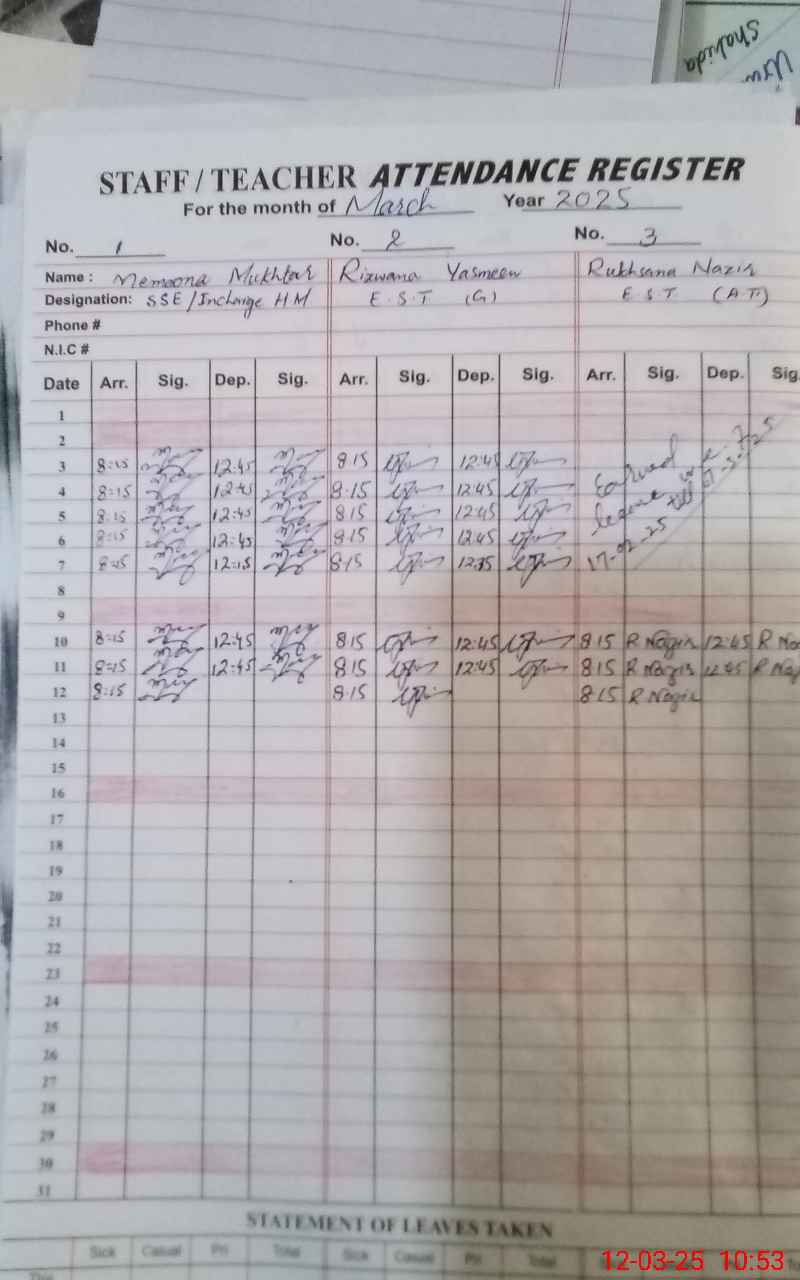 Shahida
STAFF / TEACHER ATTENDANCE REGISTER
For the month of March Year 2025
No. 1 No. 2 No. 3
Name : Memoona Mukhtar Rizwana Yasmeen Rukhsana Nazir
Designation: SSE/Incharge HM E.S.T (G) E.S.T (A.T)
Phone #
N.I.C #
Date Arr. Sig. Dep. Sig. Arr. Sig. Dep. Sig. Arr. Sig. Dep. Sig.
1
2
3 8:15 12:45 8 15 12:45 Earned
4 8:15 12:45 8.15 12:45 leave w.e.f
5 8:15 12:45 8 15 12:45 17-02-25 till
6 8:15 12:45 8.15 12:45
7 8:15 12:15 8.15
8
9
10 8:15 12:45 8 15 12:45 8 15 R Nazir 12:45 R Na
11 8:15 12:45 8 15 12:45 8 15 R Nazir 12:45 R Naz
12 8:15 8.15 8.15 R Nazir
13
14
15
16
17
18
19
20
21
22
23
24
25
26
27
28
29
30
31
STATEMENT OF LEAVES TAKEN
Sick Casual Pri Total Sick Casual Pri Total
12-03-25 10:53